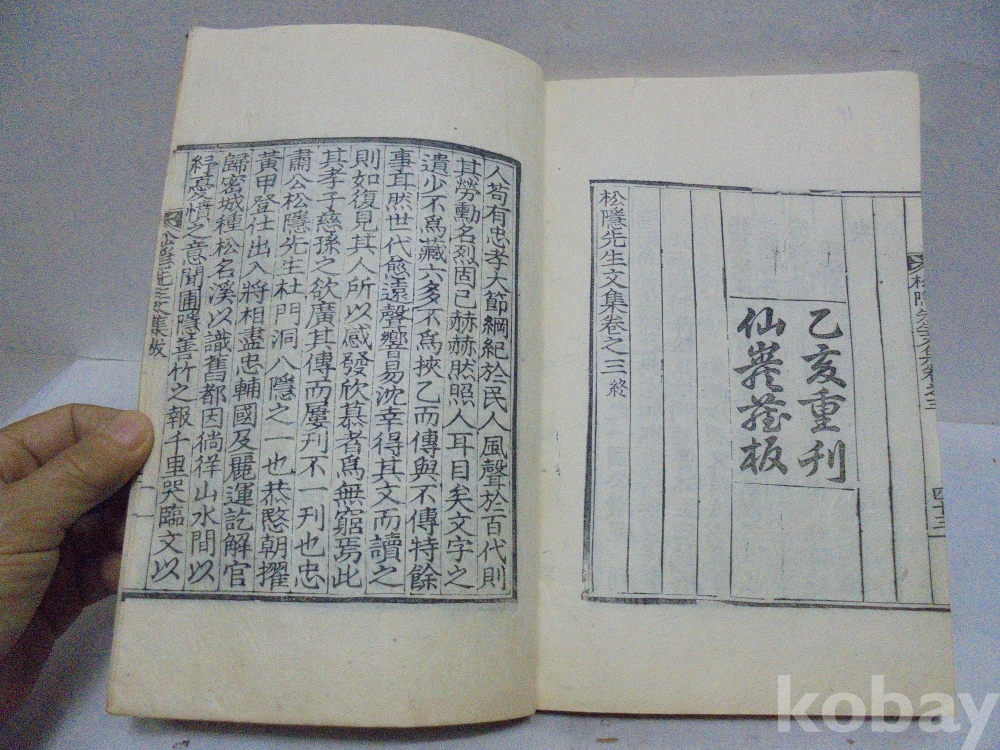 松隱先生文集卷之三
四十三
乙亥重刊
仙巖藏板
松隱先生文集卷之三終
人苟有忠孝大節綱紀於民人風聲於百代則
其勞勳名烈固已赫赫然照人耳目矣文字之
遺少不爲藏六多不爲挾乙而傳與不傳特餘
事耳然世代愈遠聲響易沈幸得其文而讀之
則如復見其人所以感發欣慕者爲無窮焉此
其孝子慈孫之欲廣其傳而屢刊不一刊也忠
肅公松隱先生杜門洞八隱之一也恭愍朝擢
黃甲登仕出入將相盡忠輔國及麗運訖解官
歸密城種松名溪以識舊都因徜徉山水間以
紓憂憤之意聞圃隱善竹之報千里哭臨文以
松隱先生文集跋
一
kobay